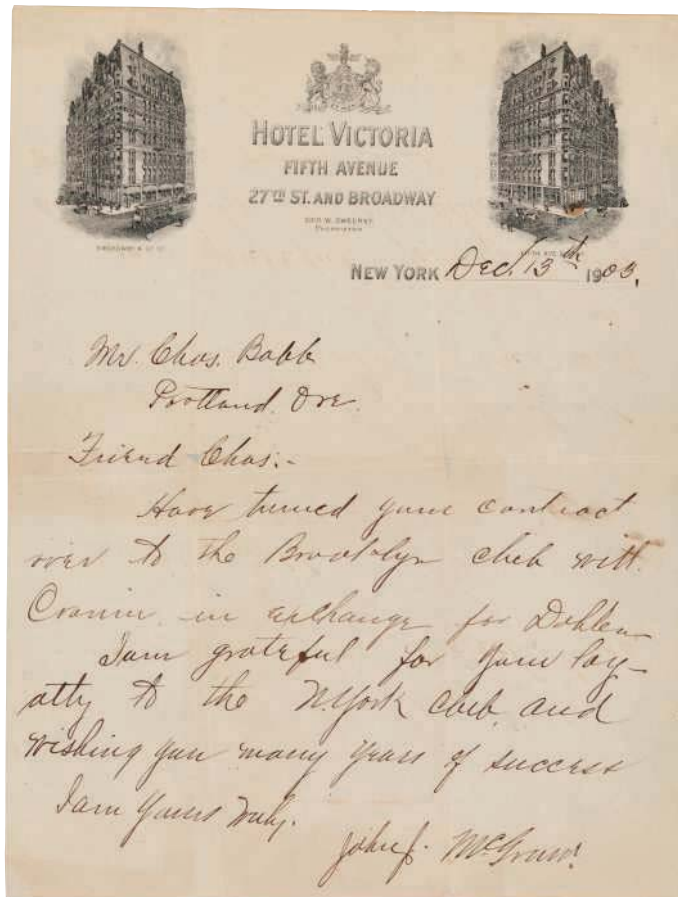 HOTEL VICTORIA
FIFTH AVENUE
27TH ST. AND BROADWAY
GEO. W. SWEENEY
PROPRIETOR
NEW YORK Dec. 13th 1903.
Mr. Chas. Babb
Portland Ore.
Friend Chas:-
Have turned your contract
over to the Brooklyn club with
Cronin in exchange for Dahlen
I am grateful for your loy-
alty to the N. York club and
wishing you many years of success
I am Yours Truly.
John J. McGraw.